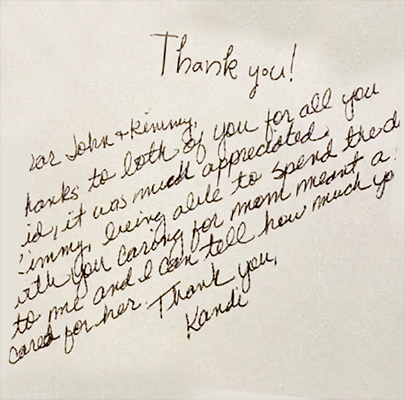 Thank you!
ear John & Kimmy,
hanks to both of you for all you
id, it was much appreciated.
immy, being able to spend the d
ith you caring for mom meant a
to me and I can tell how much yo
cared for her. Thank you,
Kandi